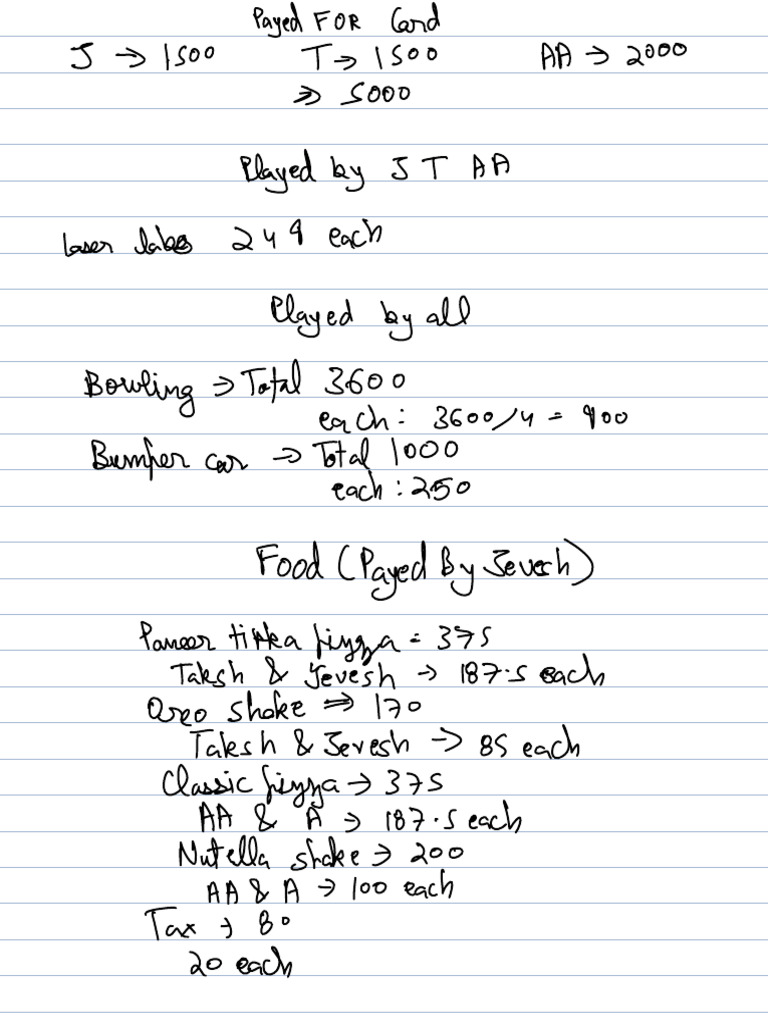 Payed FOR Card
J → 1500 T → 1500 AA → 2000
⇒ 5000
Played by J T AA
Laser 249 each
Played by all
Bowling → Total 3600
each: 3600/4 = 900
Bumper car → Total 1000
each : 250
Food (Payed By Jevesh)
Paneer tikka pizza = 375
Taksh & Jevesh → 187.5 each
Oreo shake ⇒ 170
Taksh & Jevesh → 85 each
Classic pizza → 375
AA & A → 187.5 each
Nutella shake → 200
AA & A → 100 each
Tax → 80
20 each